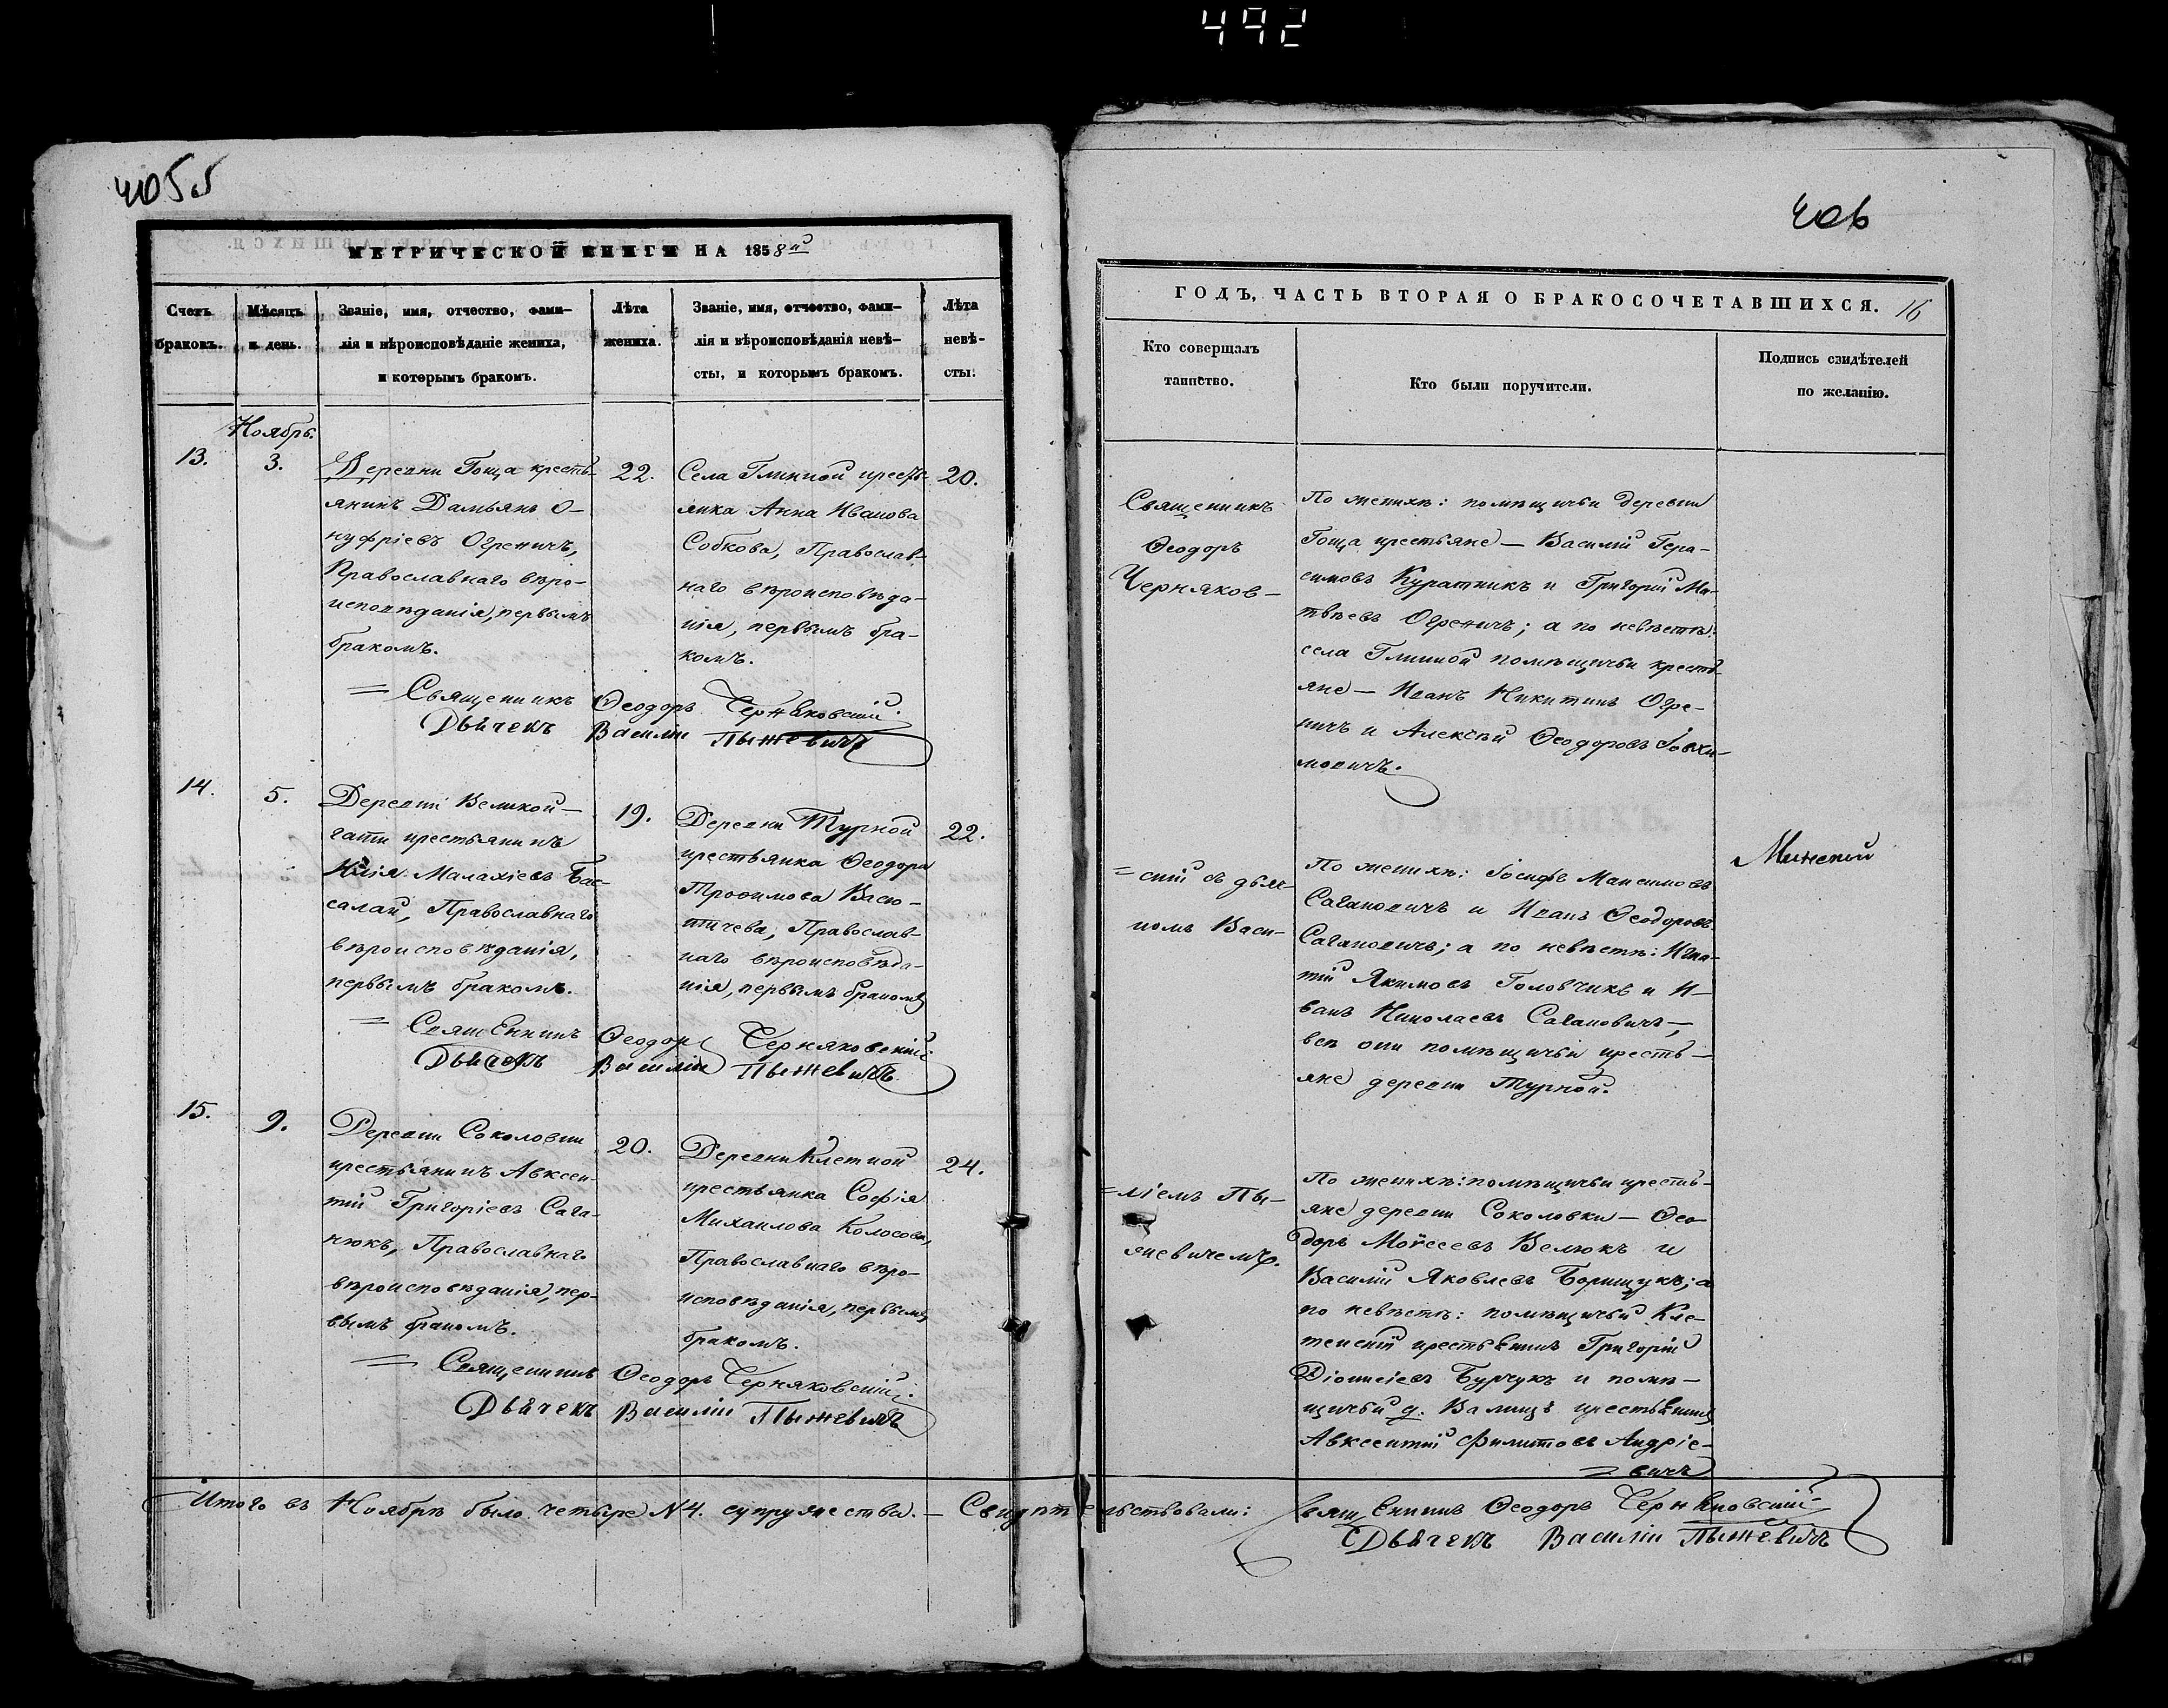 492
405
406
МЕТРИЧЕСКОЙ КНИГИ НА 1858й
Счетъ
браковъ.
Мѣсяцъ
и день.
Званіе, имя, отчество, фами-
лія и вѣроисповѣданіе жениха,
и которымъ бракомъ.
Лѣта
жениха.
Званіе, имя, отчество, фами-
лія и вѣроисповѣданія невѣ-
сты, и которымъ бракомъ.
Лѣта
невѣ-
сты.
Ноябрь.
13.
3.
Деревни Гоща кресть-
янинъ Дамьянъ О-
нуфріевъ Огреничъ,
Православнаго вѣро-
исповѣданія, первымъ
бракомъ.
22.
Села Глинной кресть-
янка Анна Иванова
Собкова, Православ-
наго вѣроисповѣда-
нія, первымъ бра-
комъ.
20.
= Священникъ Ѳеодоръ Черняковскій.
Дьячекъ Василій Пыжевичъ
14.
5.
Деревни Великой-
гати крестьянинъ
Илія Малахіевъ Бас-
салай, Православнаго
вѣроисповѣданія,
первымъ бракомъ.
19.
Деревни Турной
крестьянка Ѳеодора
Трофимова Васю-
тичева, Православ-
наго вѣроисповѣда-
нія, первымъ бракомъ
22.
= Священникъ Ѳеодоръ Черняковскій.
Дьячекъ Василій Пыжевичъ.
15.
9.
Деревни Соколовки
крестьянинъ Авксен-
тій Григоріевъ Сага-
нюкъ, Православнаго
вѣроисповѣданія, пер-
вымъ бракомъ.
20.
Деревни Клетной
крестьянка Софія
Михаилова Колосова,
Православнаго вѣро-
исповѣданія, первымъ
бракомъ.
24.
= Священникъ Ѳеодоръ Черняковскій.
Дьячекъ Василій Пыжевичъ
Итого въ Ноябрѣ было четыре №4. супружества. — Свидѣтельствовали: Священникъ Ѳеодоръ Черняковскій
Дьячекъ Василій Пыжевичъ
ГОДЪ, ЧАСТЬ ВТОРАЯ О БРАКОСОЧЕТАВШИХСЯ. 16
Кто совершалъ
таинство.
Кто были поручители.
Подпись свидѣтелей
по желанію.
Священникъ
Ѳеодоръ
Черняков-
=скій съ дьяч-
комъ Васи-
=ліемъ Пы-
жевичемъ.
По женихѣ: помѣщичьи деревни
Гоща крестьяне — Василій Гера-
симовъ Куратникъ и Григорій Ма-
твѣевъ Огреничъ; а по невѣстѣ:
села Глинной помѣщичьи кресть-
яне — Иванъ Никитинъ Огре-
ничъ и Алексѣй Ѳеодоровъ Іовхи-
мовичъ.
По женихѣ: Іосифъ Максимовъ
Сагановичъ и Иванъ Ѳеодоровъ
Сагановичъ; а по невѣстѣ: Игна-
тій Якимовъ Головчикъ и И-
ванъ Николаевъ Сагановичъ,
всѣ они помѣщичьи кресть-
яне деревни Турной.
По женихѣ: помѣщичьи кресть-
яне деревни Соколовки — Ѳео-
доръ Моѵсеевъ Велюкъ и
Василій Яковлевъ Борищукъ; а
по невѣстѣ: помѣщичьи Кле-
тенскій крестьянинъ Григорій
Діонисіевъ Бурчукъ и помѣ-
щичьи д. Валищъ крестьянинъ
Авксентій Филиповъ Андріе-
=вичъ